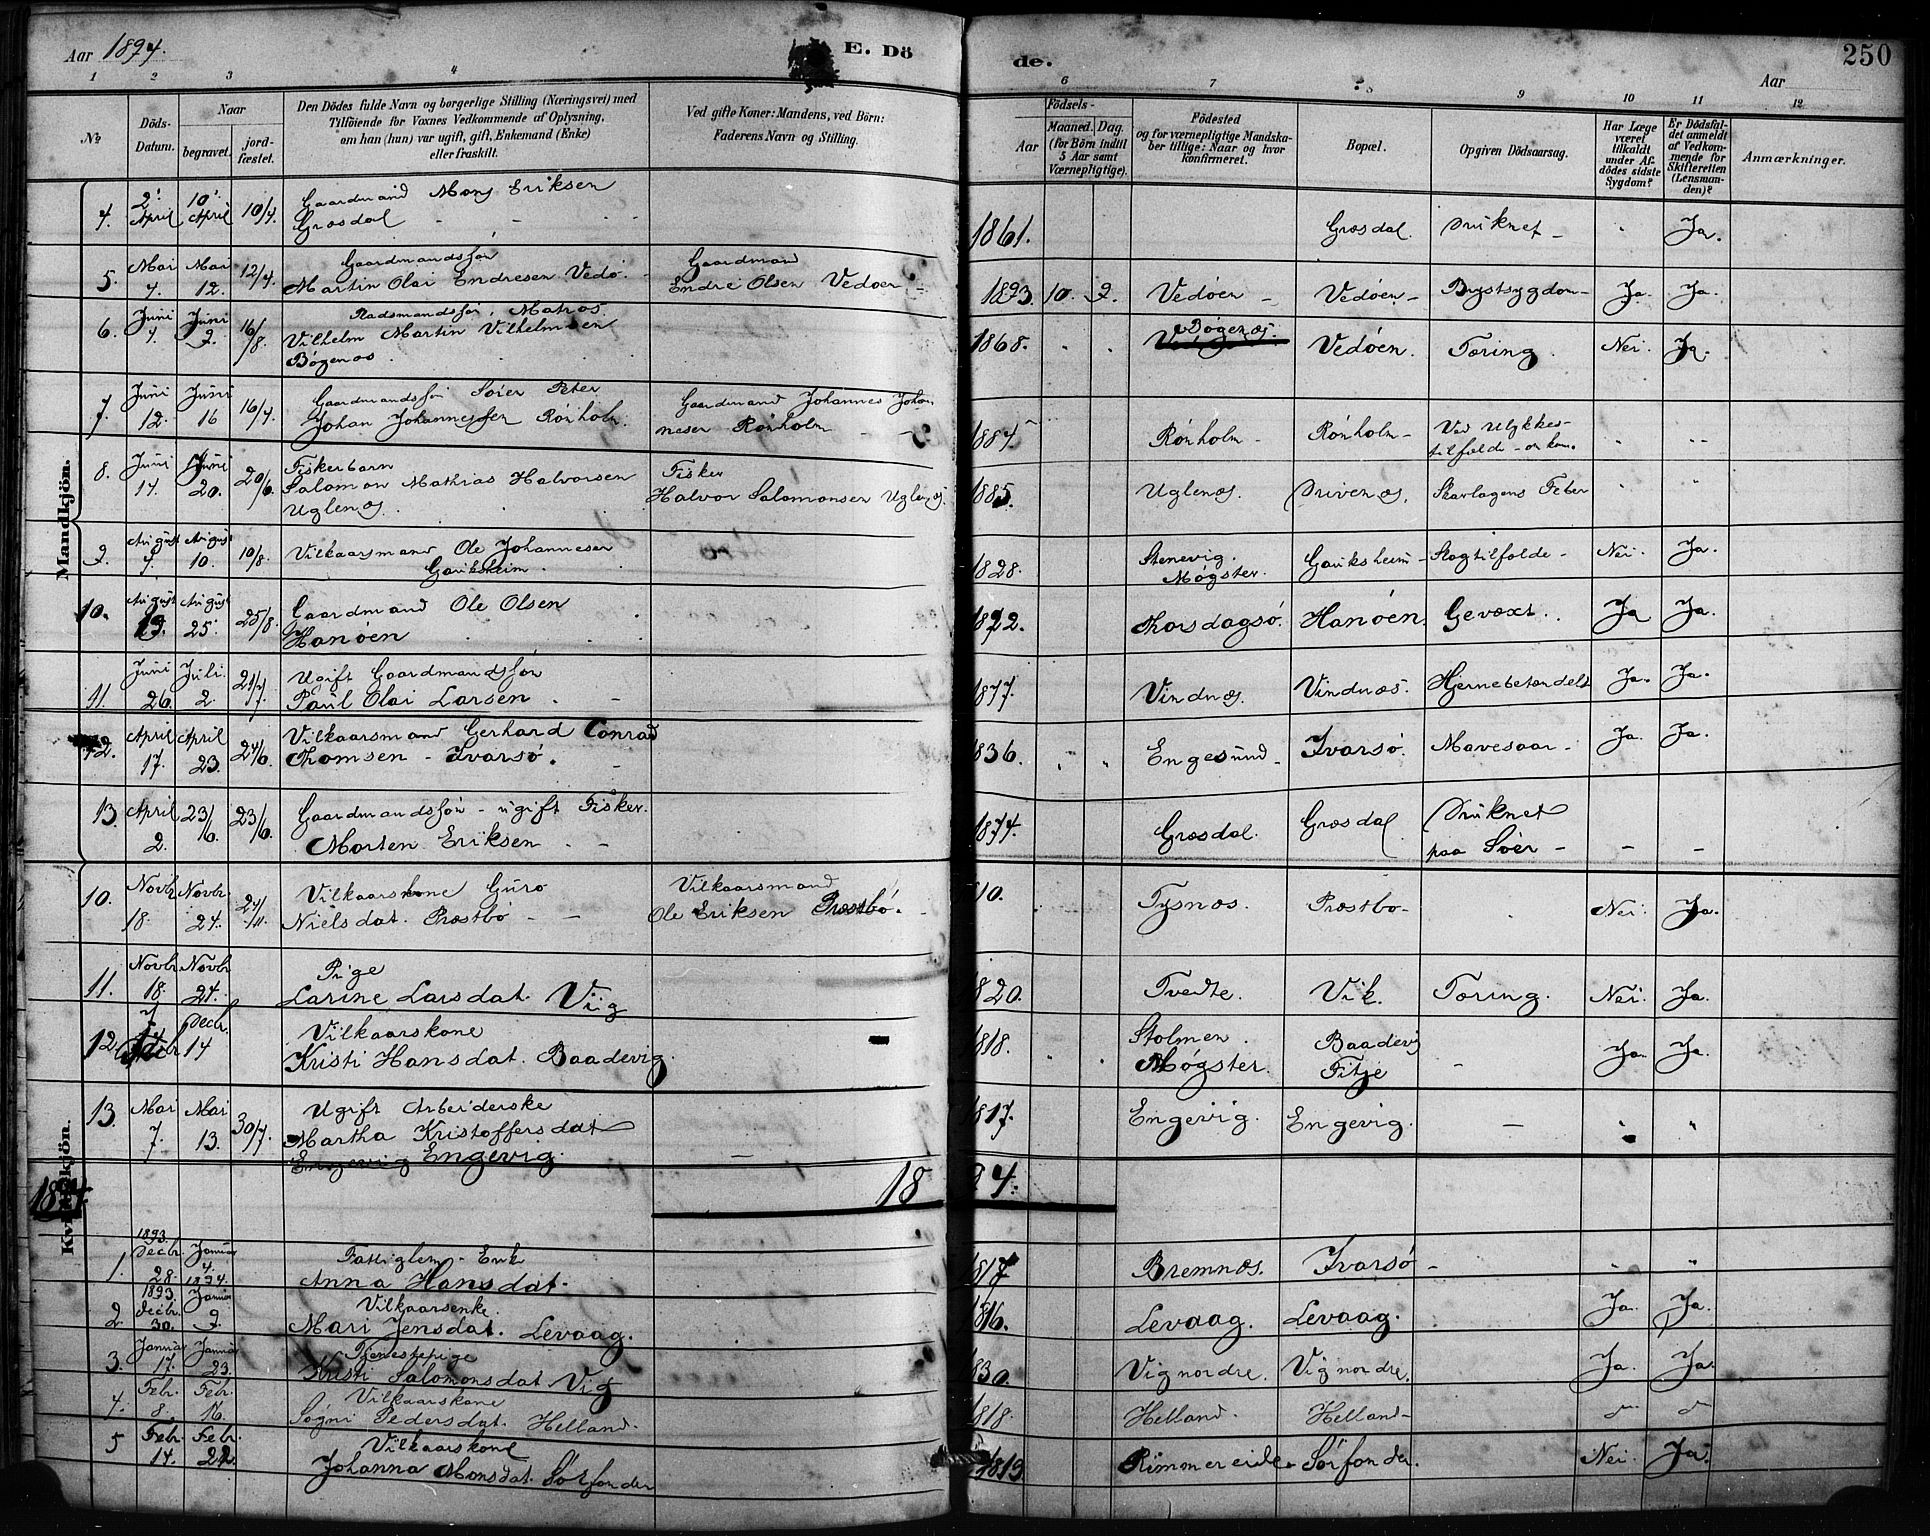 Aar 1894.
E. Dö
de.
Aar
250
1 2 3 4 6 7 8 9 10 11 12
No
Döds-Datum.
Naar
begravet.
jord-fæstet.
Den Dödes fulde Navn og borgerlige Stilling (Næringsvei) med
Tilföiende for Voxnes Vedkommende af Oplysning,
om han (hun) var ugift, gift, Enkemand (Enke)
eller fraskilt.
Ved gifte Koner: Mandens, ved Börn:
Faderens Navn og Stilling.
Födsels-
Aar
Maaned. Dag.
(for Börn indtil
5 Aar samt
Værnepligtige).
Födested
og for værnepligtige Mandska-
ber tillige: Naar og hvor
konfirmeret.
Bopæl.
Opgiven Dödsaarsag.
Har Læge
været
tilkaldt
under Af-
dödes sidste
Sygdom?
Er Dödsfal-
det anmeldt
af Vedkom-
mende for
Skifteretten
(Lensman-
den)?
Anmærkninger.
Mandkjön.
4. 2' April 10' April 10/4. Gaardmand Mons Eriksen
Græsdal 1861. Græsdal. Druknet Ja.
5. Mai 4. Mai 12. 12/4. Gaardmandssøn
Martin Olai Endresen Vedø. Gaardmand
Endre Olsen Vedøen 1893. 10. 9. Vedøen Vedøen Brystsygdom Ja. Ja.
6. Juni 4. Juni 9. 16/8. Raadsmandssøn, Matros.
Vilhelm Martin Vilhelmsen
Bøgenæs. 1868. Bøgenæs. Vedøen. Tæring. Nei. Ja.
7. Juni 12. Juni 16 16/7. Gaardmandssøn Søren Peter
Johan Johannessen Rønholm. Gaardmand Johannes Johan
nesen Rønholm 1884 Rønholm Rønholm Ved Ulykkes-
tilfælde omkom.
8. Juni 14. Juni 20. 20/6. Fiskerbarn
Salomon Mathias Halvorsen
Uglenæs. Fisker
Halvor Salomonsen Uglenæs 1885. Uglenæs. Drivenæs. Skarlagens Feber
9. August 4. August 10. 10/8. Vilkaarsmand Ole Johannesen
Gauksheim. 1828. Stenevig.
Møgster. Gauksheim Slagtilfælde Nei. Ja.
10. August August 25. 25/8. Gaardmand Ole Olsen
Hanøen 1822. Thorsdagsø. Hanøen Gevæxt. Ja Ja.
11. Juni 26. Juli 2. 21/7. Ugift Gaardmandssøn
Paul Olai Larsen 1877. Vindnæs. Vindnæs. Hjernebetændelse Ja. Ja.
12. April 17. April 23. 24/6. Vilkaarsmand Gerhard Conrad
Thomsen - Ivarsø. 1836. Engesund Ivarsø. Mavesaar Ja. Ja.
13. April 2. 23/6. 23/6. Gaardmandssøn - ugift Fisker.
Morten Eriksen 1874. Græsdal. Græsdal Druknet
paa Søen
Kvindekjön.
10. Novbr. 18. Novbr. 24. 24/11. Vilkaarskone Guro
Nielsdat. Præstbø Vilkaarsmand
Ole Eriksen Præstbø. 1810. Tysnæs. Præstbo Nei. Ja.
11. Novbr. 18. Novbr. 24. Pige
Larine Larsdat. Viig 1820. Tvedte. Vik. Tæring. Nei. Ja.
12. 7 Decbr. 14 Vilkaarskone
Kristi Hansdat. Baadevig. 1818. Stolmen.
Møgster. Baadevig
Fitje Ja. Ja.
13. Mai 7. Mai 13. 30/7. Ugift Arbeiderske
Martha Kristoffersdat
Engevig Engevig. 1817. Engevig. Engevig.
1894. 1894.
1. 1893. Decbr. 28. Januar 4. 1894. Fattiglem - Enke
Anna Hansdat. 1817 Bremnæs. Ivarsø
2. 1893. Decbr. 30. Januar 9. Vilkaarsenke.
Mari Jensdat. Levaag. 1816. Levaag. Levaag. Ja. Ja.
3. Januar 17. Januar 23. Tjenestepige
Kristi Salomonsdat. Vig 1830. Vig nordre. Vig nordre. Ja. Ja.
4. Febr. 8. Febr. 16. Vilkaarskone
Søgni Pedersdat. Helland. 1818. Helland. Helland
5 Febr. 14. Febr. 22. Vilkaarskone
Johanna Monsdat. Sørfonden 1819 Rimmereide Sørfonden. Nei. Ja.